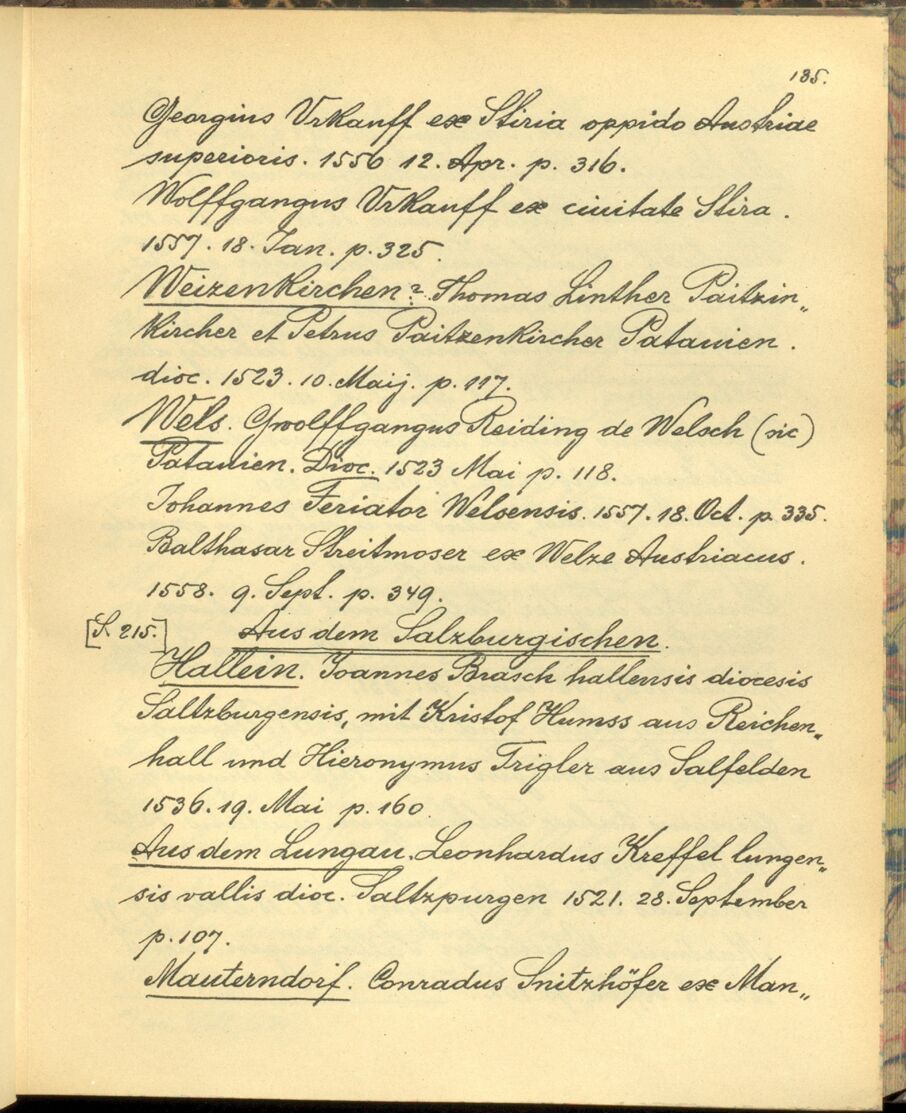 135.
Georgius Vrkauff ex Stiria oppido Austriae
superioris. 1556 12. Apr. p. 316.
Wolffgangus Vrkauff ex ciuitate Stira.
1557. 18. Jan. p. 325.
Weizenkirchen? Thomas Linther Paitzin„
kircher et Petrus Paitzenkircher Patauien.
dioc. 1523. 10. Maij. p. 117.
Wels. Gwolffgangus Reiding de Welsch (sic)
Patauien. Dioc. 1523 Mai p. 118.
Johannes Feriator Welsensis. 1557. 18. Oct. p. 335.
Balthasar Streitmoser ex Welze Austriacus.
1558. 9. Sept. p. 349.
[S. 215.] Aus dem Salzburgischen.
Hallein. Joannes Brasch hallensis diocesis
Saltzburgensis, mit Kristof Humss aus Reichen„
hall und Hieronymus Trigler aus Salfelden
1536. 19. Mai p. 160.
Aus dem Lungau. Leonhardus Kreffel lungen„
sis vallis dioc. Saltzpurgen 1521. 28. September
p. 107.
Mauterndorf. Conradus Snitzhöfer ex Man„